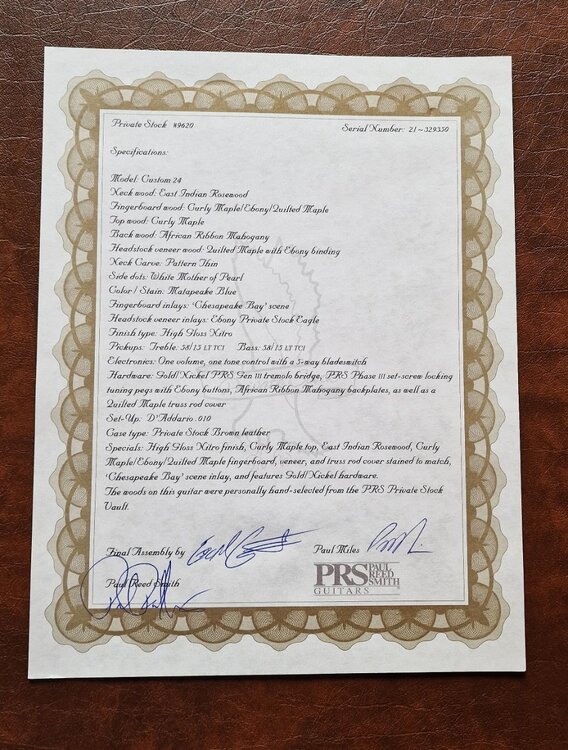 Private Stock #9620
Serial Number: 21~329350
Specifications:
Model: Custom 24
Neck wood: East Indian Rosewood
Fingerboard wood: Curly Maple/Ebony/Quilted Maple
Top wood: Curly Maple
Back wood: African Ribbon Mahogany
Headstock veneer wood: Quilted Maple with Ebony binding
Neck Carve: Pattern Thin
Side dots: White Mother of Pearl
Color / Stain: Matapeake Blue
Fingerboard inlays: 'Chesapeake Bay' scene
Headstock veneer inlays: Ebony Private Stock Eagle
Finish type: High Gloss Nitro
Pickups: Treble: 58/15 LT TCI Bass: 58/15 LT TCI
Electronics: One volume, one tone control with a 5-way bladeswitch
Hardware: Gold/Nickel PRS Gen III tremolo bridge, PRS Phase III set-screw locking
tuning pegs with Ebony buttons, African Ribbon Mahogany backplates, as well as a
Quilted Maple truss rod cover
Set-Up: D'Addario .010
Case type: Private Stock Brown leather
Specials: High Gloss Nitro finish, Curly Maple top, East Indian Rosewood, Curly
Maple/Ebony/Quilted Maple fingerboard, veneer, and truss rod cover stained to match,
'Chesapeake Bay' scene inlay, and features Gold/Nickel hardware.
The woods on this guitar were personally hand-selected from the PRS Private Stock
Vault.
Final Assembly by
Paul Miles
Paul Reed Smith
PRS PAUL REED SMITH
GUITARS